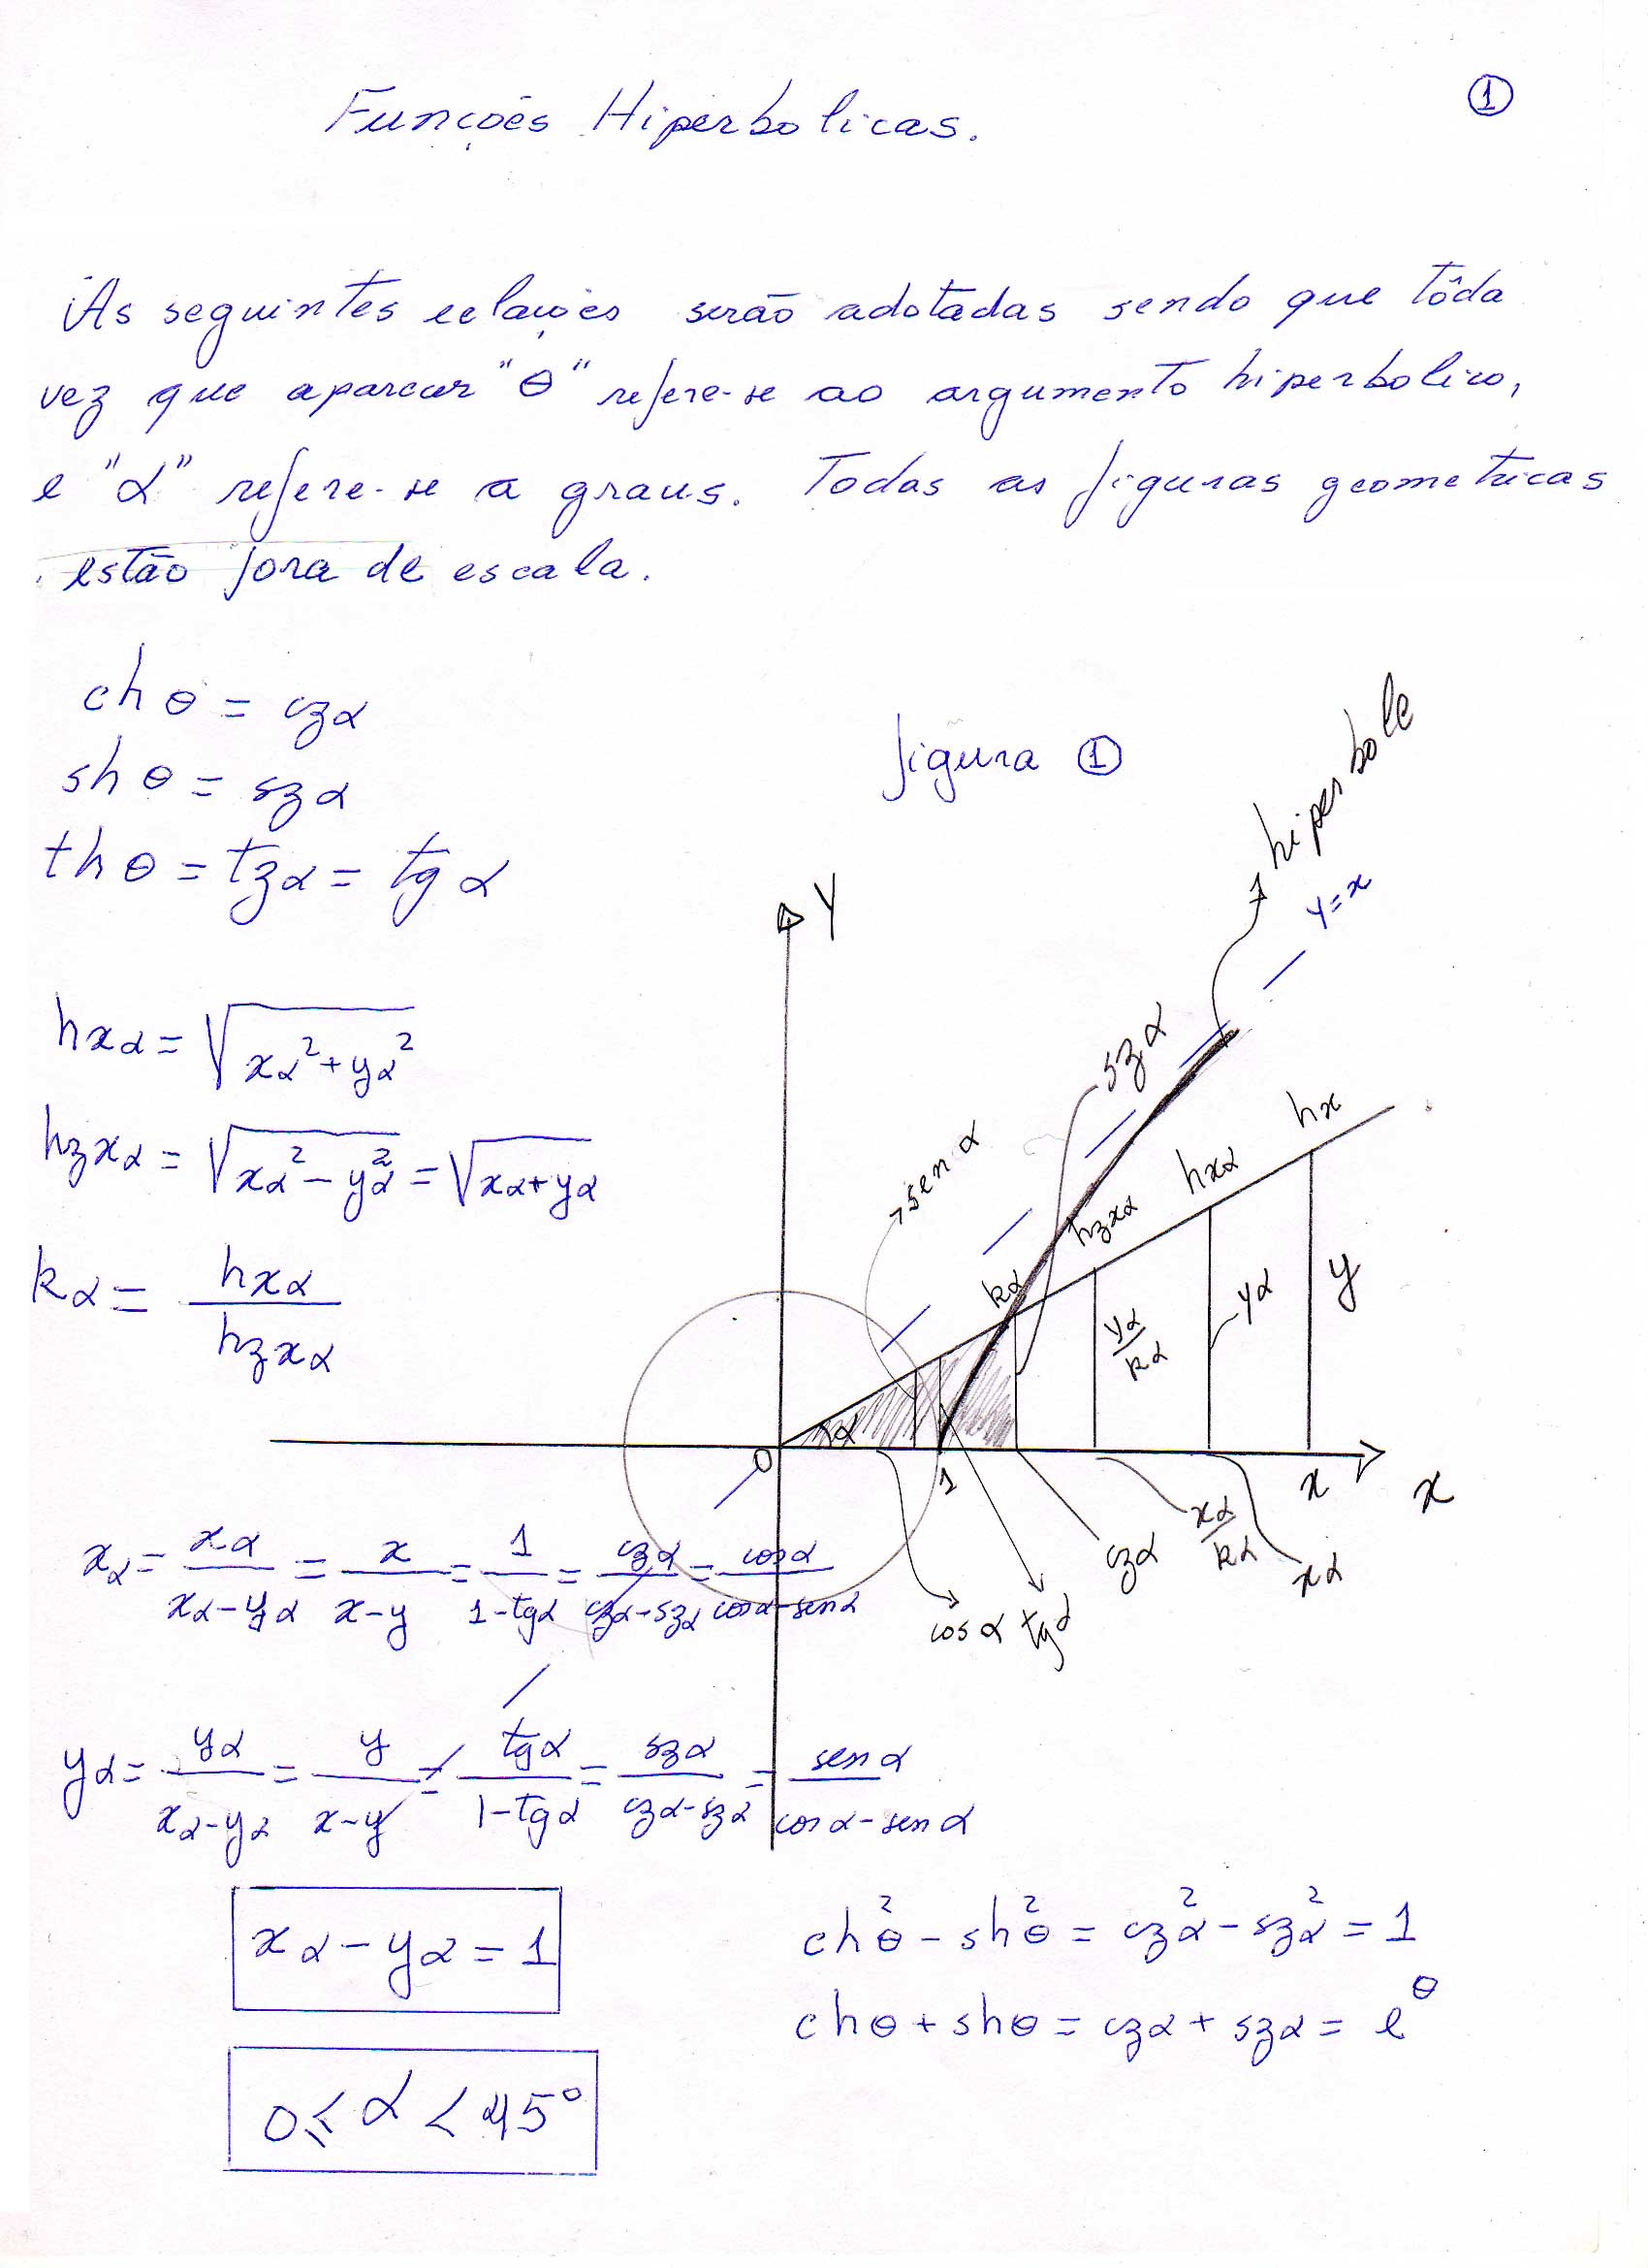 ①
Funções Hiperbolicas.
As seguintes relações serão adotadas sendo que tôda
vez que aparecer "θ" refere-se ao argumento hiperbolico,
e "α" refere-se a graus. Todas as figuras geometricas
estão fora de escala.
ch θ = czα
sh θ = szα
th θ = tzα = tg α
figura ①
hiperbole
Y=x
Y
hxα = √(xα² + yα²)
hzxα = √(xα² - yα²) = √(xα + yα)
kα = hxα / hzxα
szα
sen α
hx
hxα
hzxα
kα
yα/kα
yα
y
α
0
1
x
x
cos α
tgα
czα
xα/kα
xα
xα = xα/(xα-yα) = x/(x-y) = 1/(1-tgα) = czα/(czα-szα) = cosα/(cosα-senα)
yα = yα/(xα-yα) = y/(x-y) = tgα/(1-tgα) = szα/(czα-szα) = senα/(cosα-senα)
xα - yα = 1
ch²θ - sh²θ = cz²α - sz²α = 1
chθ + shθ = czα + szα = e^θ
0 ≤ α < 45°